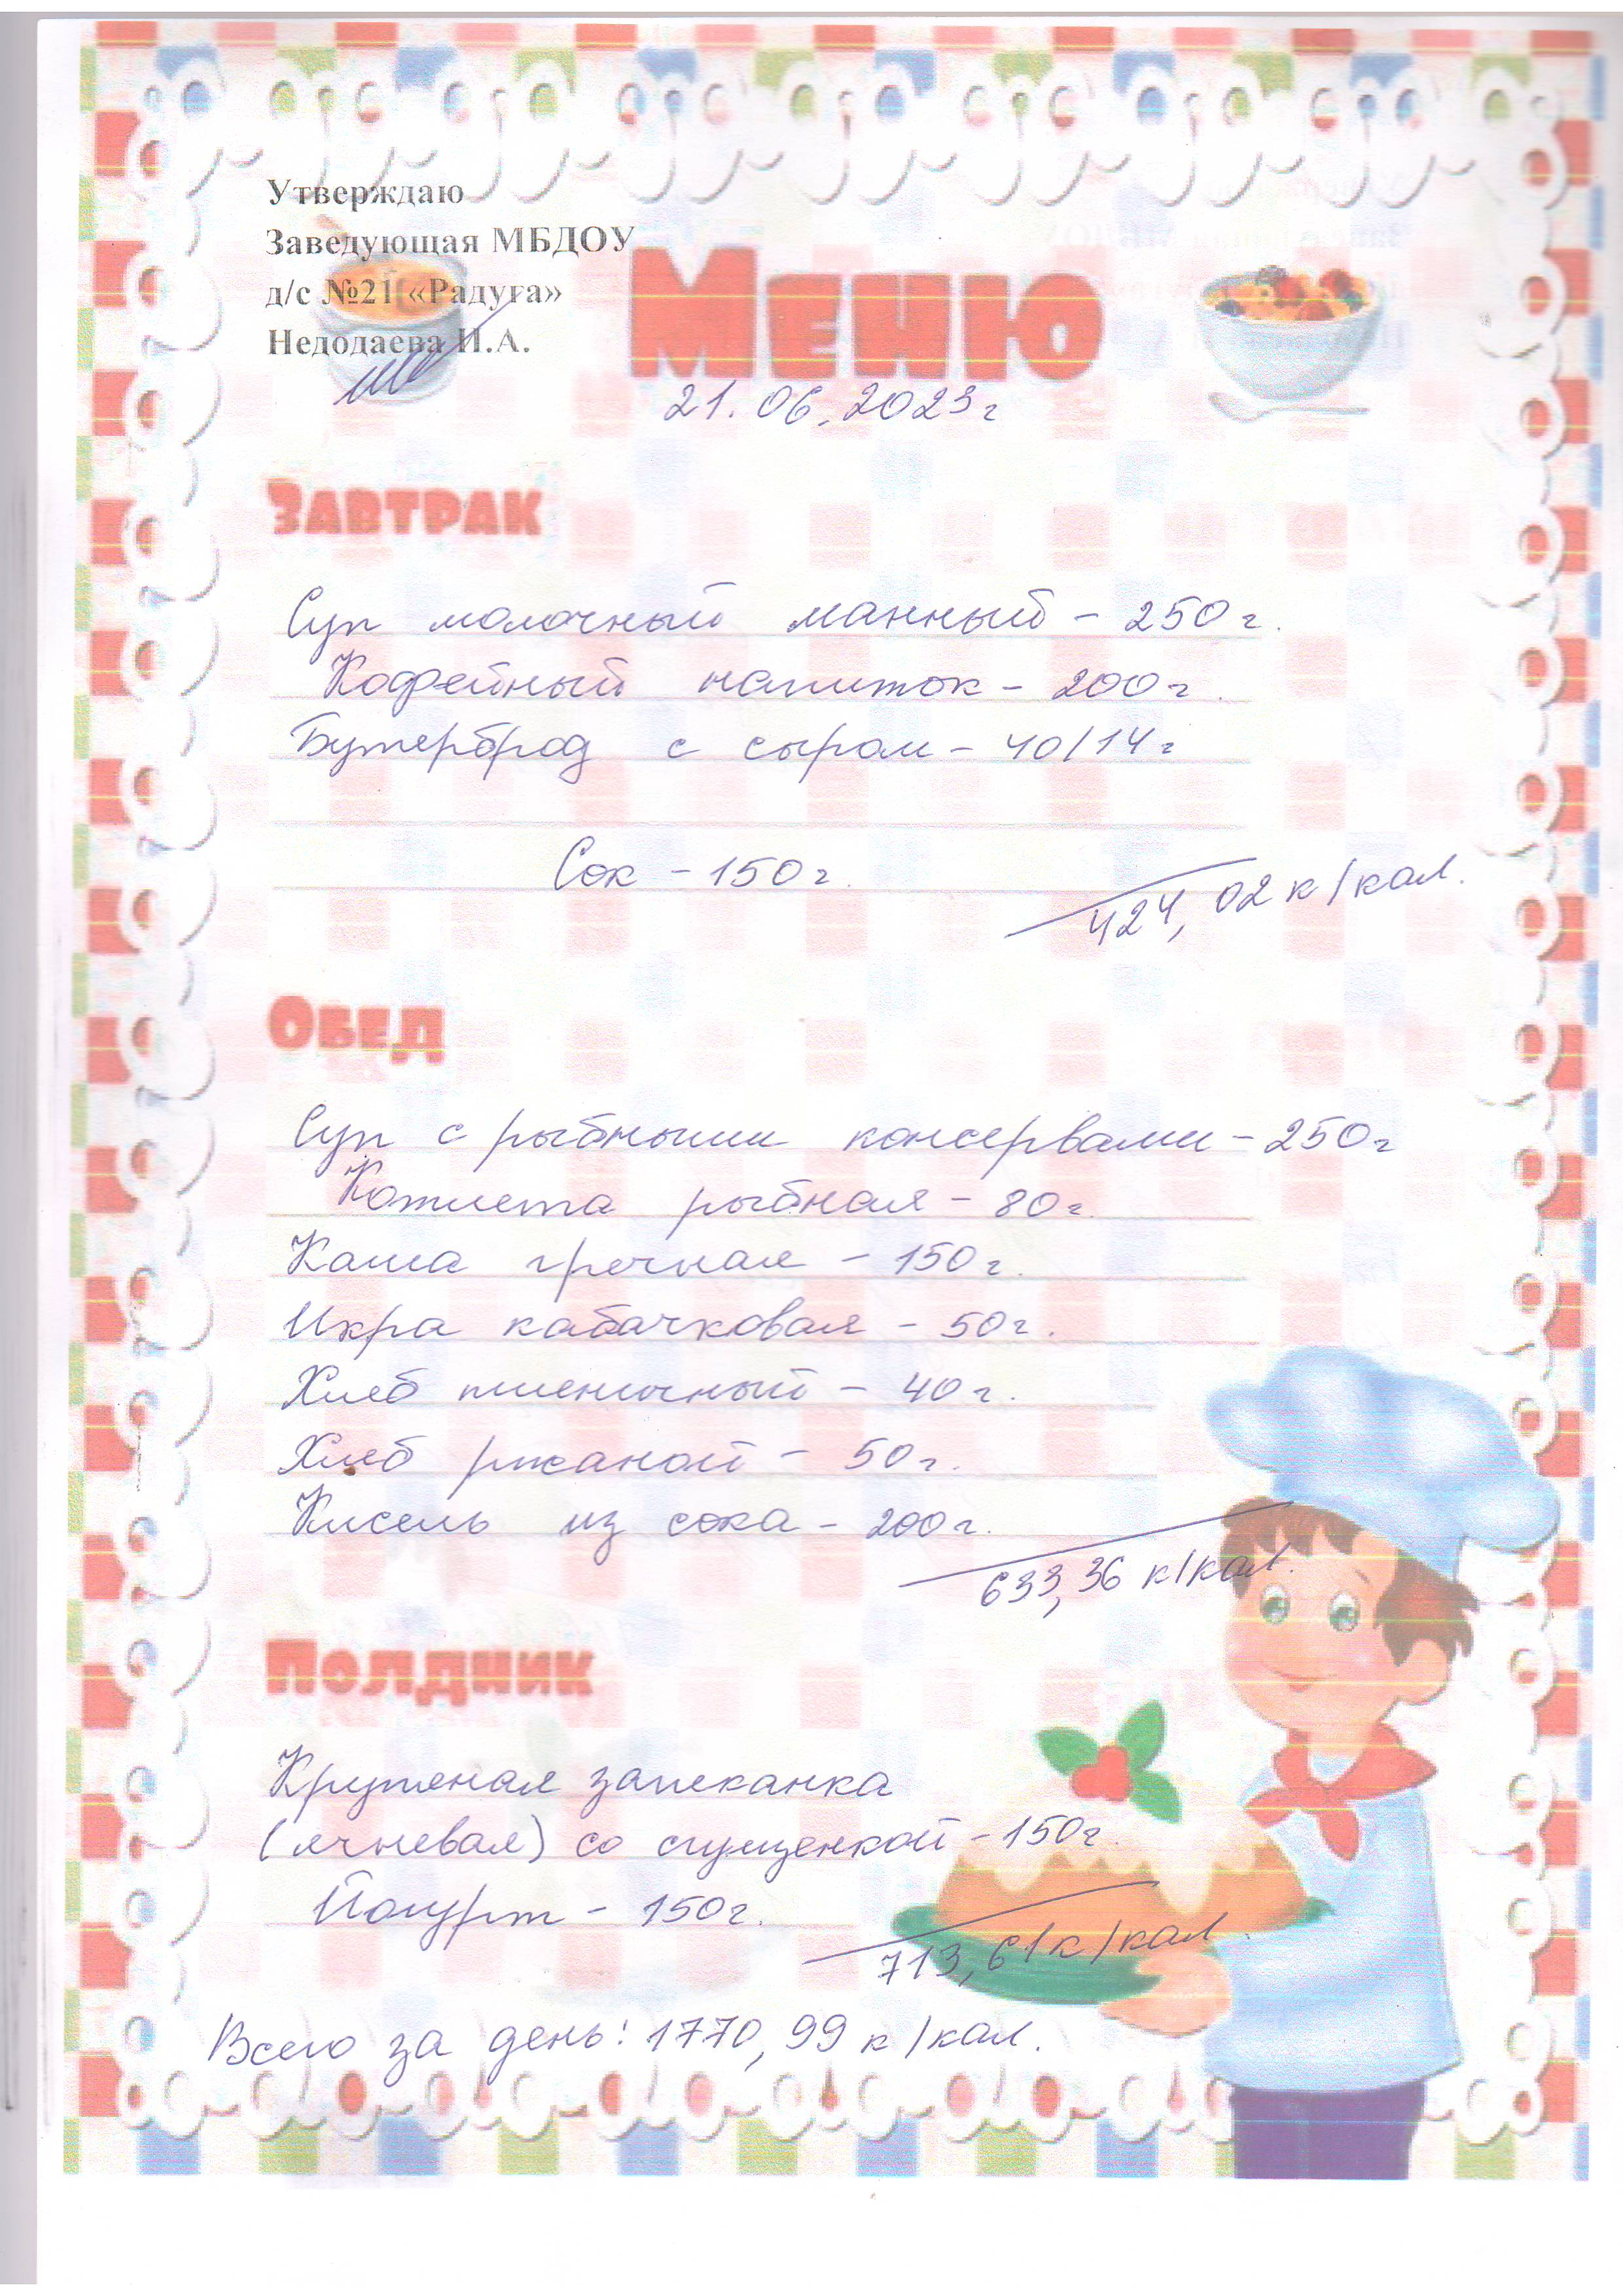 Утверждаю
Заведующая МБДОУ
д/с №21 «Радуга»
Недодаева И.А.
Меню
21.06.2023г
Завтрак
Суп молочный манный - 250г.
Кофейный напиток - 200г.
Бутерброд с сыром - 40/14г
Сок - 150г.
424,02 к/кал.
Обед
Суп с рыбными консервами - 250г
Котлета рыбная - 80г.
Каша гречная - 150г.
Икра кабачковая - 50г.
Хлеб пшеничный - 40г.
Хлеб ржаной - 50г.
Кисель из сока - 200г.
633,36 к/кал.
Полдник
запеканка
(ячневая) со сгущенкой - 150г.
Йогурт - 150г.
713,61к/кал.
Всего за день: 1770,99 к/кал.